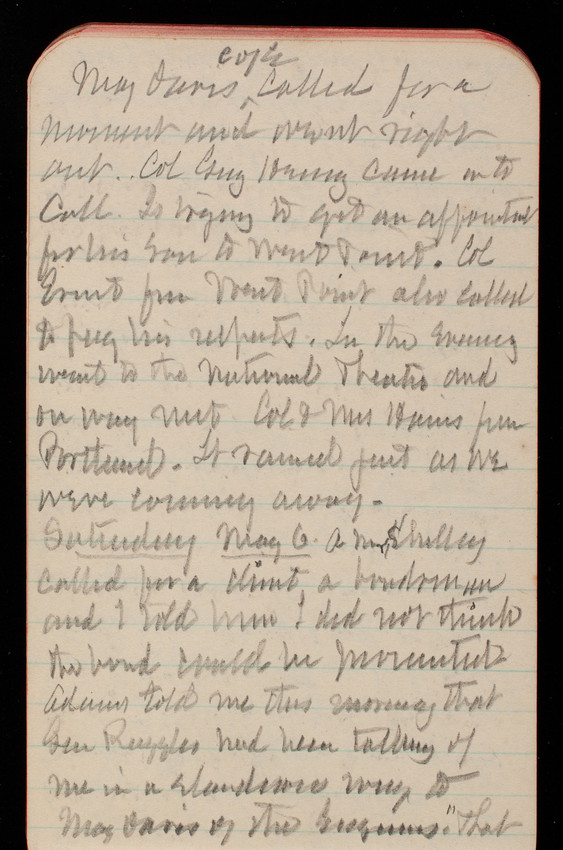 eng's
Maj Davis, called for a
moment and went right
out.. Col Guy Henry came in to
Call. Is trying to get an appointmt
for his son to West Point. Col
Ernst from West Point also called
to pay his respects. In the evening
went to the National Theatre and
on way met Col & Mrs Hains from
Portland. It rained just as we
were coming away -
Saturday May 6. a Mr Shelley
called for a client, a bondsman
and I told him I did not think
the bond could be prevented
Adams told me this morning that
Gen Ruggles had been talking of
me in a slanderous way to
Maj Davis of the Engineers." That